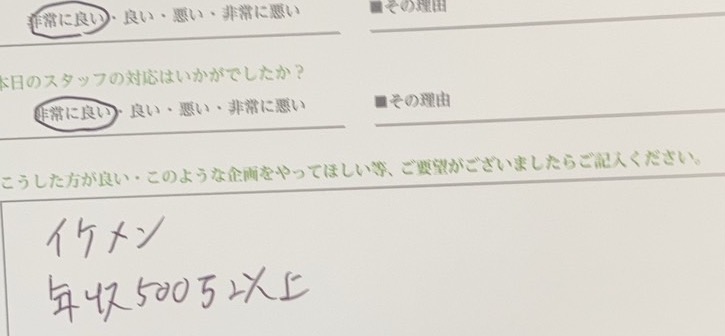 非常に良い・良い・悪い・非常に悪い ■その理由
本日のスタッフの対応はいかがでしたか？
非常に良い・良い・悪い・非常に悪い ■その理由
こうした方が良い・このような企画をやってほしい等、ご要望がございましたらご記入ください。
イケメン
年収500万以上